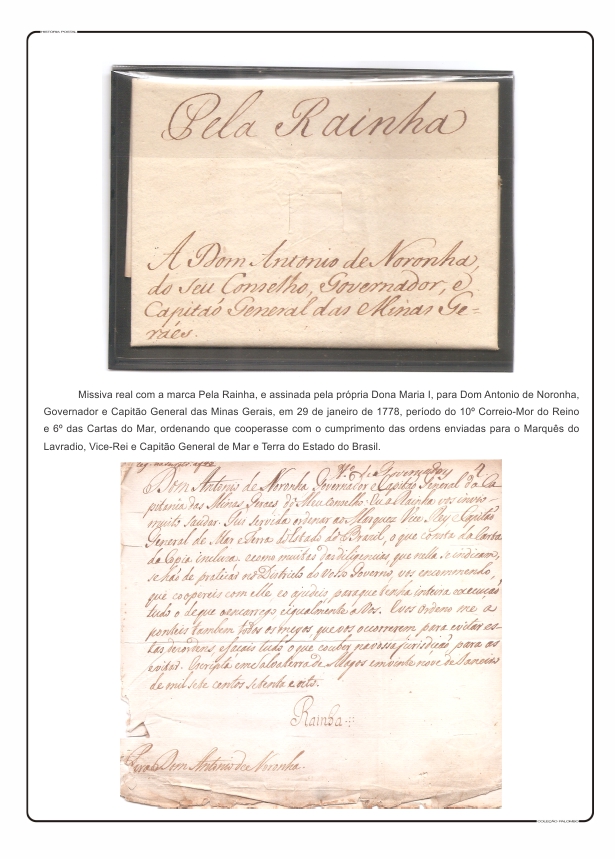 HISTÓRIA POSTAL
Pela Rainha
A Dom Antonio de Noronha,
do Seu Conselho, Governador, e
Capitaó General das Minas Ge=
ráes.
Missiva real com a marca Pela Rainha, e assinada pela própria Dona Maria I, para Dom Antonio de Noronha,
Governador e Capitão General das Minas Gerais, em 29 de janeiro de 1778, período do 10º Correio-Mor do Reino
e 6º das Cartas do Mar, ordenando que cooperasse com o cumprimento das ordens enviadas para o Marquês do
Lavradio, Vice-Rei e Capitão General de Mar e Terra do Estado do Brasil.
Dom Antonio de Noronha Governador e Capitão General da Ca
pitania das Minas Geraes do Meu Conselho. Eu a Rainha vos invio
muito saudar. Fui servida ordenar ao Marquez Vice Rey e Capitão
General de Mar e Terra do Estado do Brasil, o que consta da Carta
da Copia incluza. e como muitas das diligencias, que nella se indicam,
se hão de praticar no Districto do Vosso Governo, vos encommendo,
que coopereis com elle, e o ajudeis, para que tenha inteira execução
tudo o de que o encarrego, e igualmente a Vos. E vos ordeno me a
ponteis tambem todos os meyos, que vos ocorrerem para evitar es-
tas dezordens, e façais tudo o que couber na vossa jurisdição para as
evitar. Escripta em Salvaterra de Magos em vinte nove de Janeiro
de mil sete centos setenta e oito.
Rainha
Para Dom Antonio de Noronha.
COLEÇÃO PALOMBO